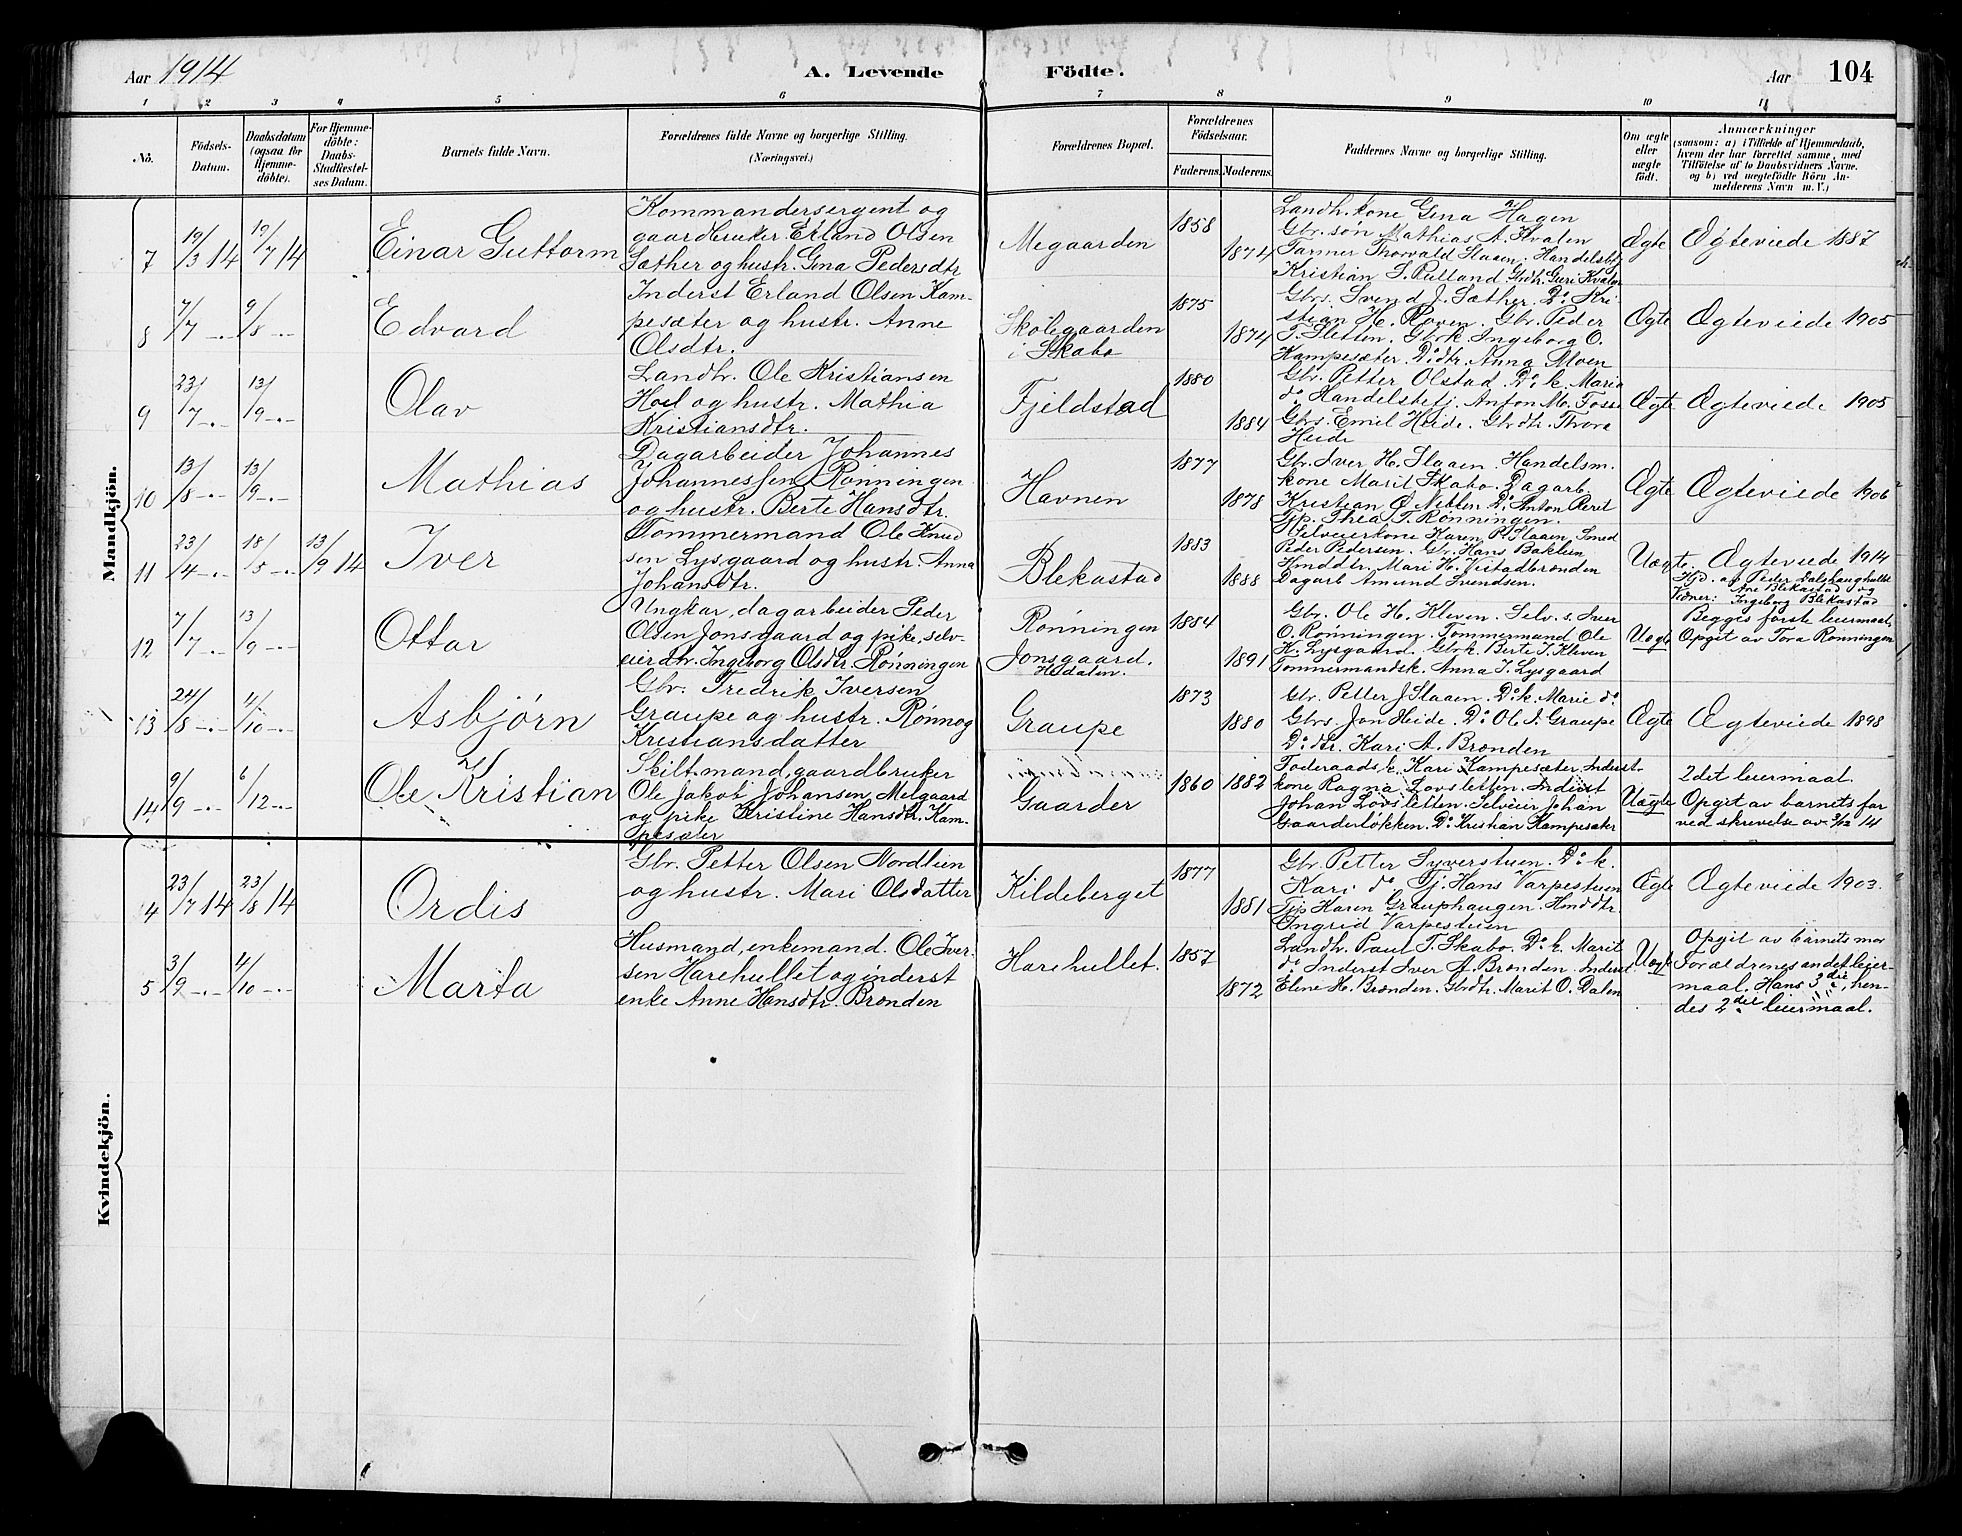 Aar 1914
A. Levende Födte.
Aar 104
1 2 3 4 5 6 7 8 9 10 11
No.
Födsels-
Datum.
Daabsdatum
(ogsaa for
Hjemme-
döbte).
For Hjemme-
döbte:
Daabs-
Stadfæstel-
ses Datum.
Barnets fulde Navn.
Forældrenes fulde Navne og borgerlige Stilling.
(Næringsvei.)
Forældrenes Bopæl.
Forældrenes
Födselsaar.
Faderens. Moderens.
Faddernes Navne og borgerlige Stilling.
Om ægte
eller
uægte
födt.
Anmærkninger
(saasom: a) i Tilfælde af Hjemmedaab,
hvem der har forrettet samme, med
Tilföielse af to Daabsvidners Navne.
og b) ved uægtefödte Börn An-
melderens Navn m. V.)
Mandkjön.
7
19/3 14
19/7 14
Einar Guttorm
Kommandersergent og
gaardbruker Erland Olsen
Sæther og hustr. Gina Pedersdtr
Megaarden
1858
1874
Landh. kone Gina Hagen
Gbr. søn Mathias A. Kvalen
Tanner Thorvald Slaaen. Handelsbt
Kristian S. Rulland Gbdtr. Guri Kvalen
Ægte
Ægteviede 1887
8
7/7 -.-
9/8 -.-
Edvard
Inderst Erland Olsen Kam-
pesæter og hustr. Anne
Olsdtr.
Skolegaarden
i Skabo
1875
1874
Gbrs. Svend J. Sæther. Do Kri
stian H. Roven. Gbr. Peder
T. Sletten. Gbrk. Ingeborg O.
Kampesæter. Do dtr. Anna Moen
Ægte
Ægteviede 1905
9
23/7 -.-
13/9 -.-
Olav
Landbr. Ole Kristiansen
Hoel og hustr. Mathia
Kristiansdtr.
Fjeldstad
1880
1884
Gbr. Petter Olstad. Do k. Maria
do Handelsbetj. Anton M. Fosse
Gbrs. Emil Heide. Gbrdtr. Thora
Heide
Ægte
Ægteviede 1905
10
13/8 -.-
13/9 -.-
Mathias
Dagarbeider Johannes
Johannessen Rønningen
og hustr. Berte Hansdtr.
Havnen
1877
1878
Gbr. Iver H. Slaaen. Handelsm.
kone Marit Skabo. Dagarb.
Kristian O. Nibben Do Anton Reret
Tjp. Thea T. Rønningen.
Ægte
Ægteviede 1906
11
23/4 -.-
18/5 -.-
13/9 14
Iver
Tømmermand Ole Knud
sen Lysgaard og hustr. Anna
Johansdtr.
Blekastad
1883
1888
Selveierkone Karen P. Slaaen, Smed
Peder Pedersen. Gbr. Hans Baklien
Hmddtr. Mari H. Vistadbrønden
Dagarb. Amund Svendsen.
Uægte.
Ægteviede 1914
Hjd. av Peder Dalshaughullet
Vidner: Ane Blekastad og
Ingeborg Blekastad
12
7/7
13/9 -.-
Ottar
Ungkar, dagarbeider Peder
Olsen Jonsgaard og pike, selv-
eierdtr. Ingeborg Olsdtr Rønningen
Rønningen
Jonsgaard.
Hedalen.
1884
1891
Gbr. Ole H. Kleven. Selv. s. Iver
O. Rønningen. Tømmermand Ole
K. Lysgaard. Gbrk. Berte I. Kleven
Tømmermandsk. Anna J. Lysgaard
Uægte
Begges første leiermaal,
Opgit av Tora Rønningen
13
24/8 -.-
4/10 -.-
Asbjørn
Gbr. Fredrik Iversen
Graupe og hustr. Rønnog
Kristiansdatter
Graupe
1873
1880
Gbr. Petter J. Slaaen. Do k. Marie do
Gbrs. Jon Heide. Do Ol. I. Graupe
Do dtr. Kari A. Brønden
Ægte
Ægteviede 1898
14
9/9 -.-
6/12 -.-
Ole Kristian
Skilt mand, gaardbruker
Ole Jakob Johansen Melgaard
og pike Kristine Hansdtr. Kam-
pesæter
Gaarder
1860 1882
Føderaadsk. Kari Kampesæter. Inderst-
kone Ragna Lovsletten. Inderst
Johan Lovsletten. Selveier Johan
Gaarderløkken. Do Kristian Kampesæter
Uægte
2det leiermaal.
Opgit av barnets far
ved skrivelse av 3/12 14
Kvindekjön.
4
23/7 14
23/8 14
Ordis
Gbr. Petter Olsen Nordlien
og hustr. Mari Olsdatter
Kildeberget
1877
1881
Gbr. Petter Syverstuen. Do k.
Kari do Tj. Hans Varpestuen
Tjp Karen Grauphaugen. Hmddtr.
Ingrid Varpestuen
Ægte
Ægteviede 1903.
5
3/9 -.-
4/10 -.-
Marta
Husmand, enkemand. Ole Iver-
sen Harehullet og inderst
enke Anne Hansdtr. Brønden
Harehullet.
1857
1872
Landbr. Paul T. Skabo. Do k. Marit
do Inderst Iver A. Brønden. Inderst
Eline H. Brønden. Gbrdtr. Marit O. Dalen
Uægte
Opgit av barnets mor
Forældrenes andet leier-
maal. Hans 3die, hen-
des 2det leiermaal.